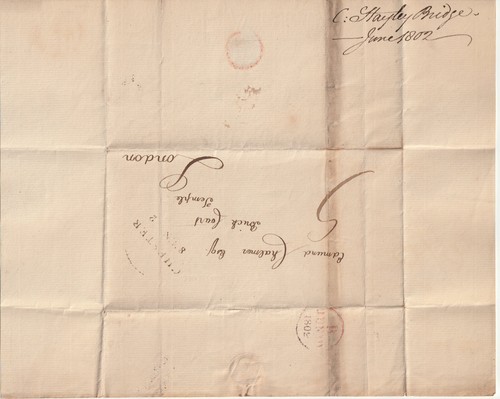 C: Stayley Bridge.
June 1802
Edmund Chalmer Esqr
Brick Court
Temple
London
CHESTER
1802